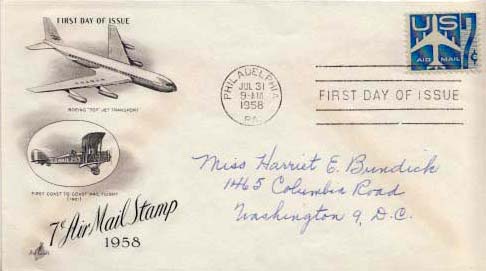 FIRST DAY OF ISSUE
BOEING "707" JET TRANSPORT
U.S. MAIL 253
FIRST COAST TO COAST MAIL FLIGHT
(1921)
7¢ Air Mail Stamp
1958
ArtCraft
PHILADELPHIA
JUL 31
9-AM
1958
PA.
US 7¢
AIR MAIL
FIRST DAY OF ISSUE
Miss Harriet E. Bundick
1465 Columbia Road
Washington 9, D.C.